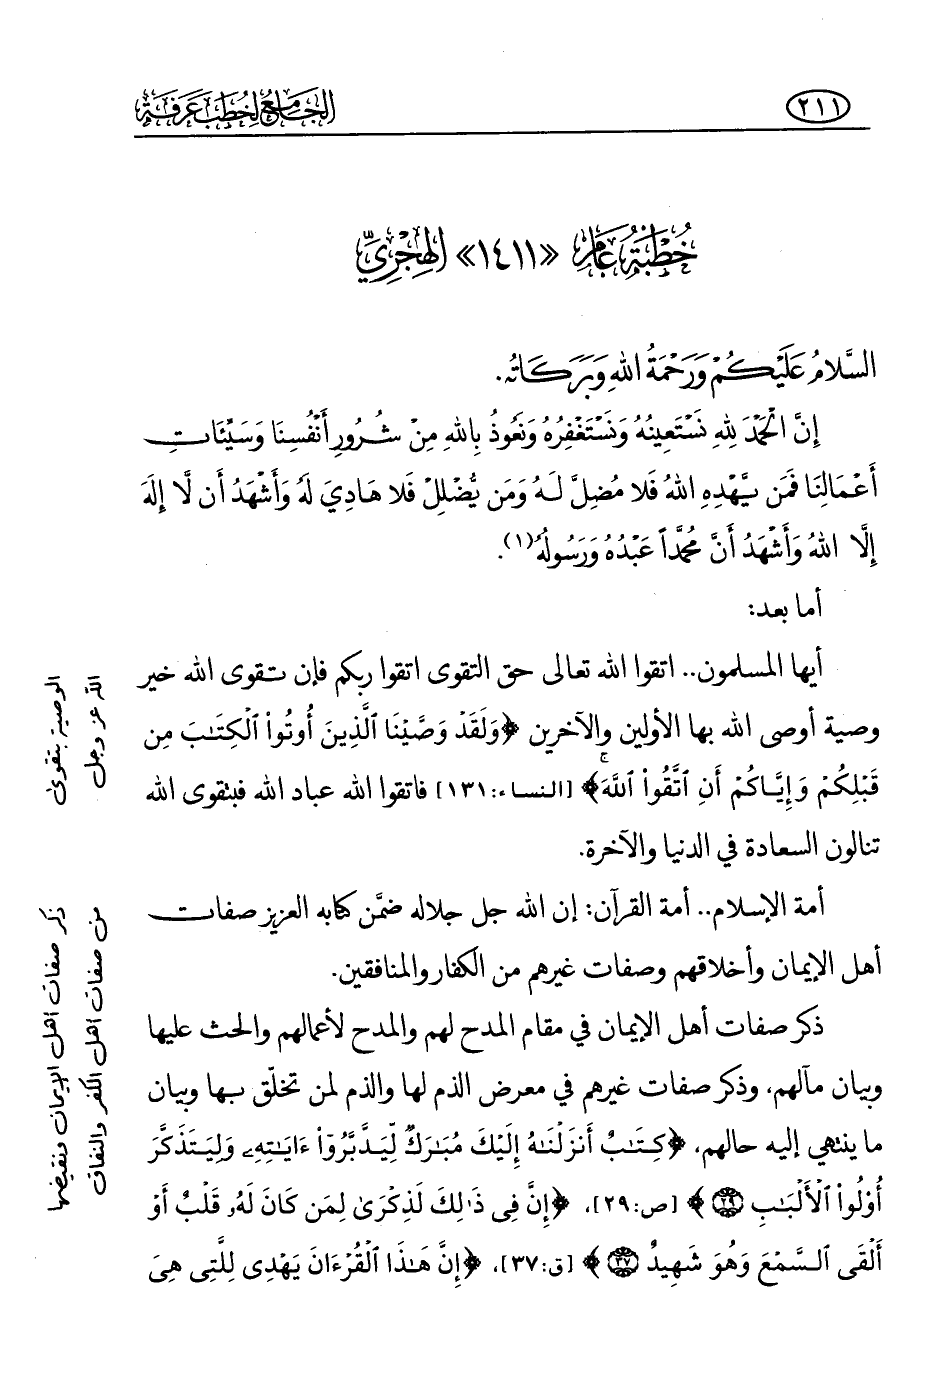 ٢١١
الجامع لخطب عرفة
خُطْبَةُ عَامِ «١٤١١» الهِجْرِيِّ
السَّلَامُ عَلَيْكُمْ وَرَحْمَةُ اللهِ وَبَرَكَاتُه.
إِنَّ الْحَمْدَ لِلهِ نَسْتَعِينُهُ وَنَسْتَغْفِرُهُ وَنَعُوذُ بِاللهِ مِنْ شُرُورِ أَنْفُسِنَا وَسَيِّئَاتِ
أَعْمَالِنَا فَمَن يَّهْدِهِ اللهُ فَلا مُضِلَّ لَهُ وَمَن يُّضْلِلْ فَلا هَادِيَ لَهُ وَأَشْهَدُ أَن لَّا إِلَهَ
إِلَّا اللهُ وَأَشْهَدُ أَنَّ مُحَمَّداً عَبْدُهُ وَرَسُولُهُ(١).
أما بعد:
أيها المسلمون.. اتقوا الله تعالى حق التقوى اتقوا ربكم فإن تقوى الله خير
وصية أوصى الله بها الأولين والآخرين ﴿وَلَقَدْ وَصَّيْنَا ٱلَّذِينَ أُوتُوا۟ ٱلْكِتَـٰبَ مِن
قَبْلِكُمْ وَإِيَّاكُمْ أَنِ ٱتَّقُوا۟ ٱللَّهَ ۚ﴾ [النساء:١٣١] فاتقوا الله عباد الله فبتقوى الله
تنالون السعادة في الدنيا والآخرة.
أمة الإسلام.. أمة القرآن: إن الله جل جلاله ضمَّن كتابه العزيز صفات
أهل الإيمان وأخلاقهم وصفات غيرهم من الكفار والمنافقين.
ذكر صفات أهل الإيمان في مقام المدح لهم والمدح لأعمالهم والحث عليها
وبيان مآلهم، وذكر صفات غيرهم في معرض الذم لها والذم لمن تخلّق بها وبيان
ما ينتهي إليه حالهم، ﴿كِتَـٰبٌ أَنزَلْنَـٰهُ إِلَيْكَ مُبَـٰرَكٌ لِّيَدَّبَّرُوٓا۟ ءَايَـٰتِهِۦ وَلِيَتَذَكَّرَ
أُو۟لُوا۟ ٱلْأَلْبَـٰبِ ٢٩﴾ [ص:٢٩]، ﴿إِنَّ فِى ذَٰلِكَ لَذِكْرَىٰ لِمَن كَانَ لَهُۥ قَلْبٌ أَوْ
أَلْقَى ٱلسَّمْعَ وَهُوَ شَهِيدٌ ٣٧﴾ [ق:٣٧]، ﴿إِنَّ هَـٰذَا ٱلْقُرْءَانَ يَهْدِى لِلَّتِى هِىَ
الوصية بتقوى
الله عز وجل
ذكر صفات أهل الإيمان ونقيضها
من صفات أهل الكفر والنفاق